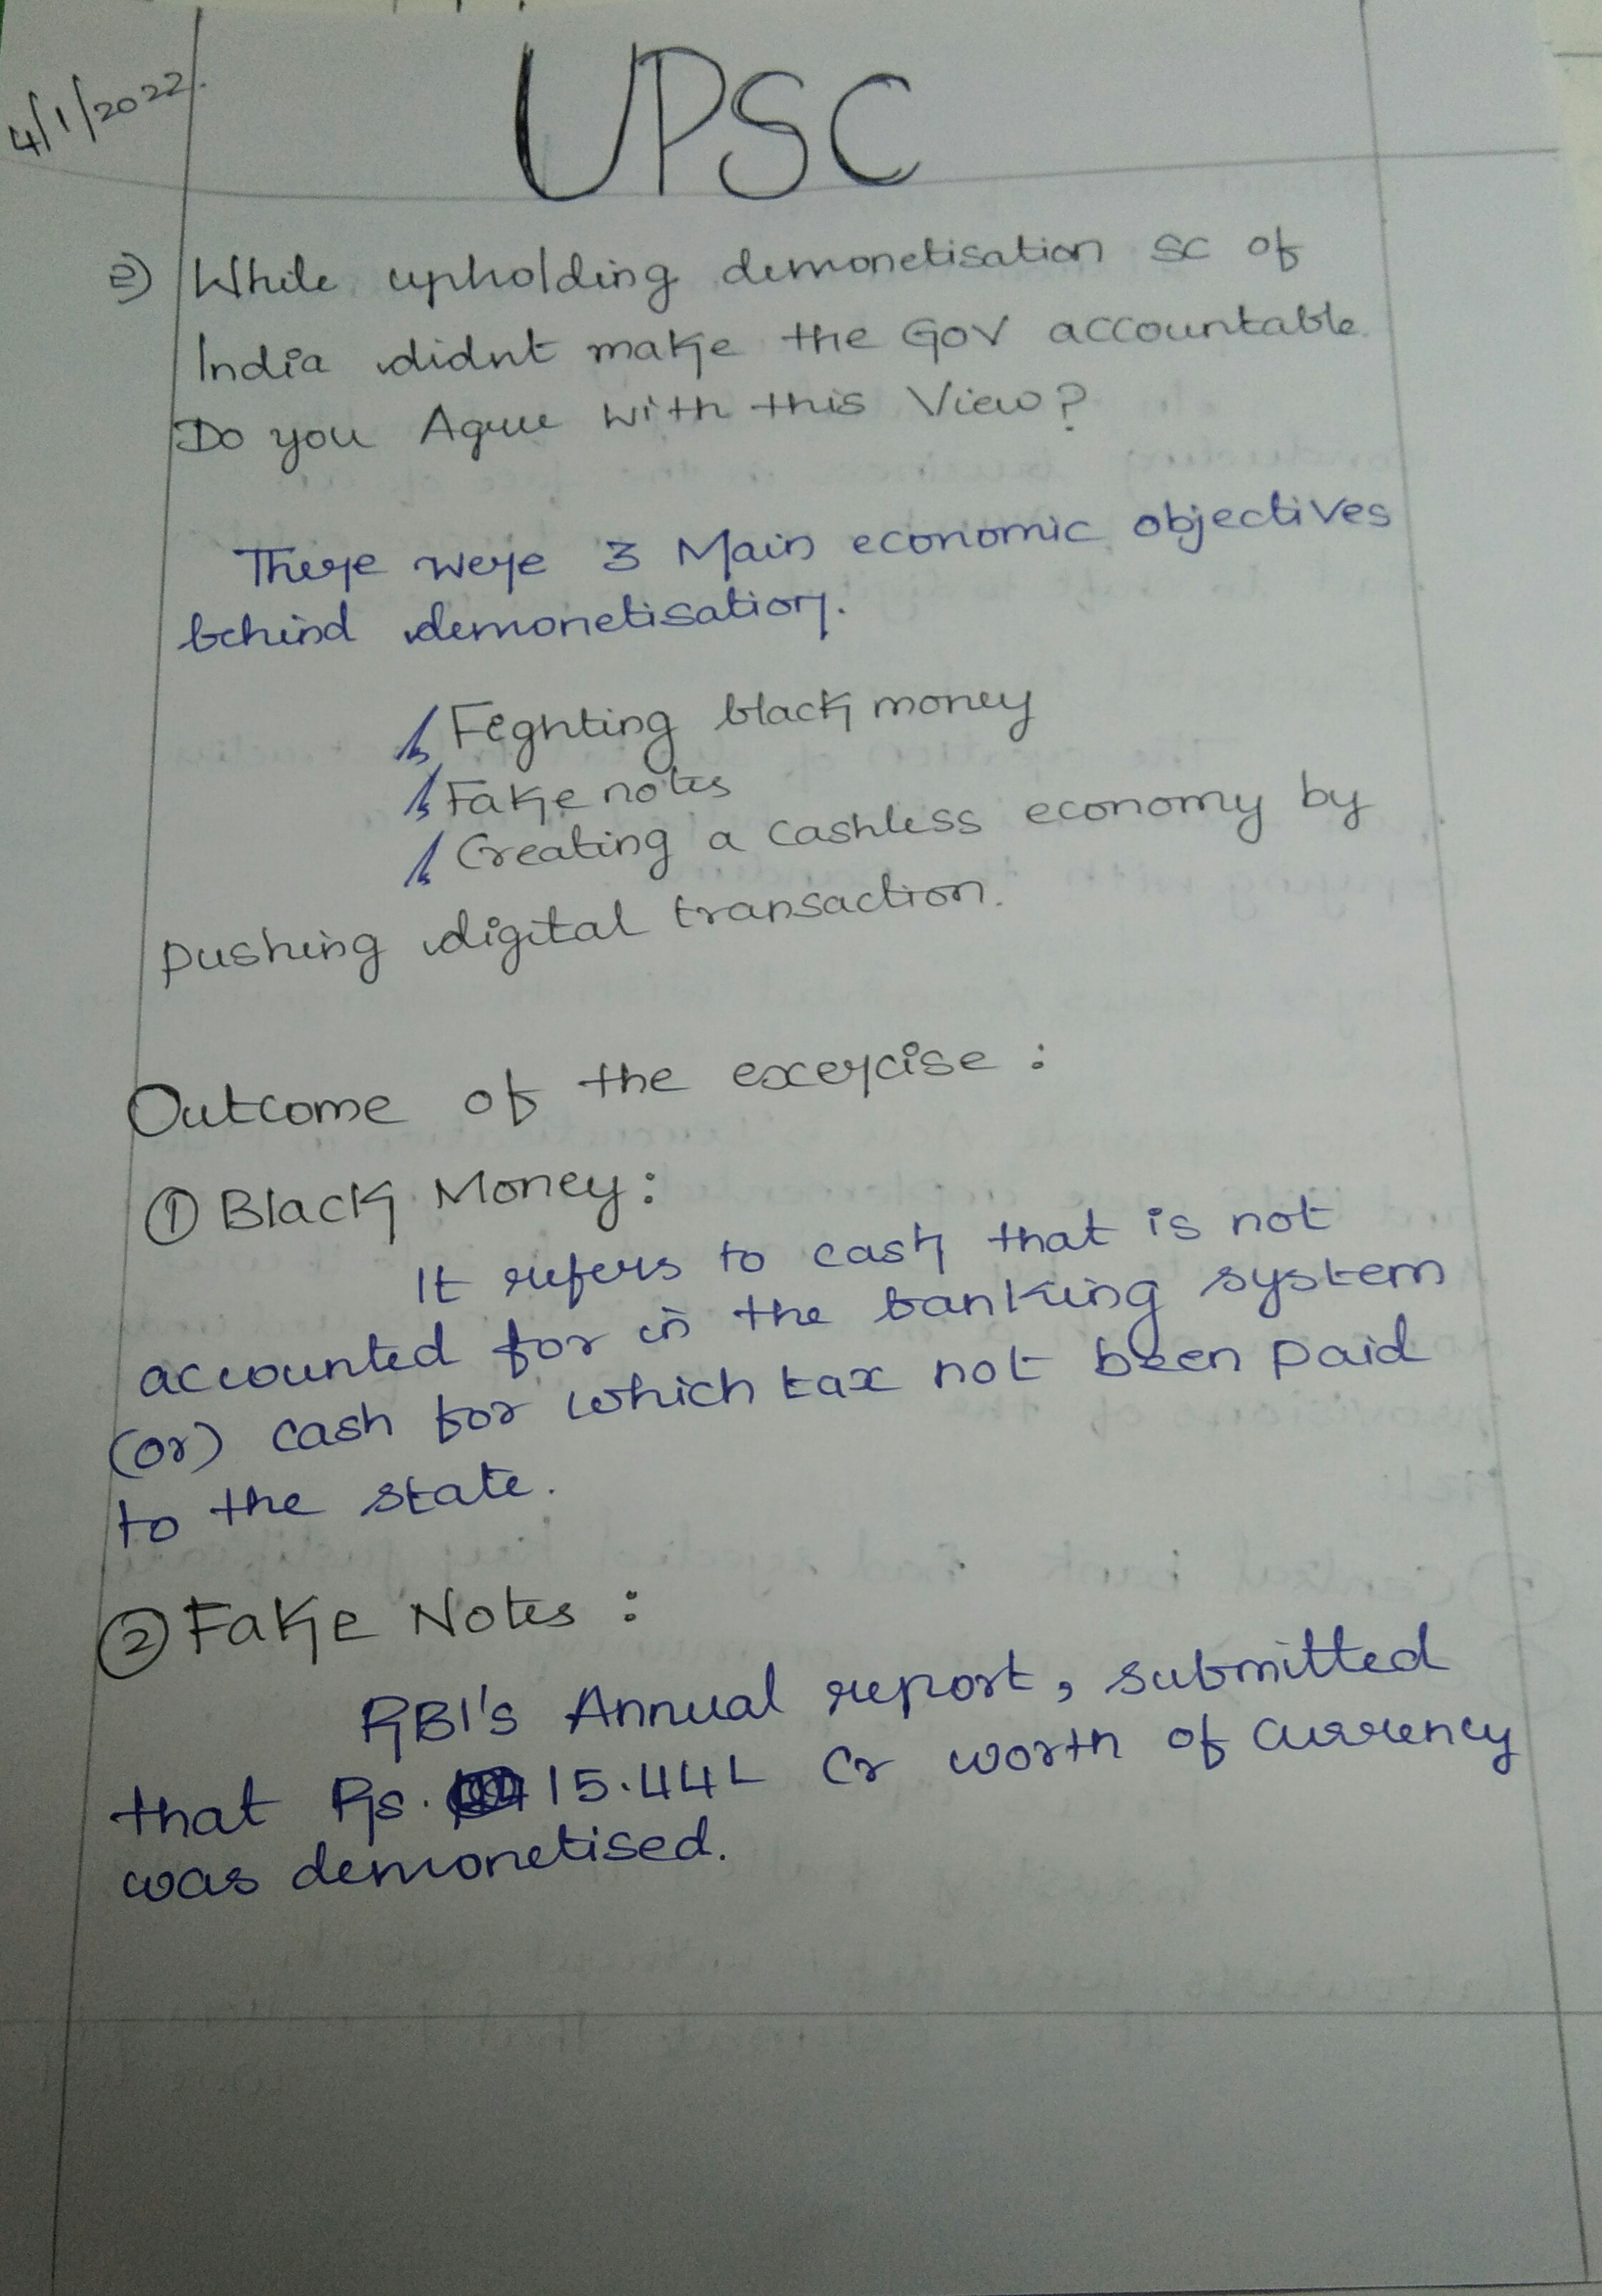 4/1/2022.
UPSC
2) While upholding demonetisation SC of
India didnt make the Gov accountable.
Do you Agree with this View?
There were 3 Main economic objectives
behind demonetisation.
Feghting black money
Fake notes
Creating a cashless economy by
pushing digital transaction.
Outcome of the excercise :
① Black Money :
It refers to cash that is not
accounted for in the banking system
(or) cash for which tax not been paid
to the state.
② Fake Notes :
RBI's Annual report, submitted
that Rs. 15.44L Cr worth of currency
was demonetised.